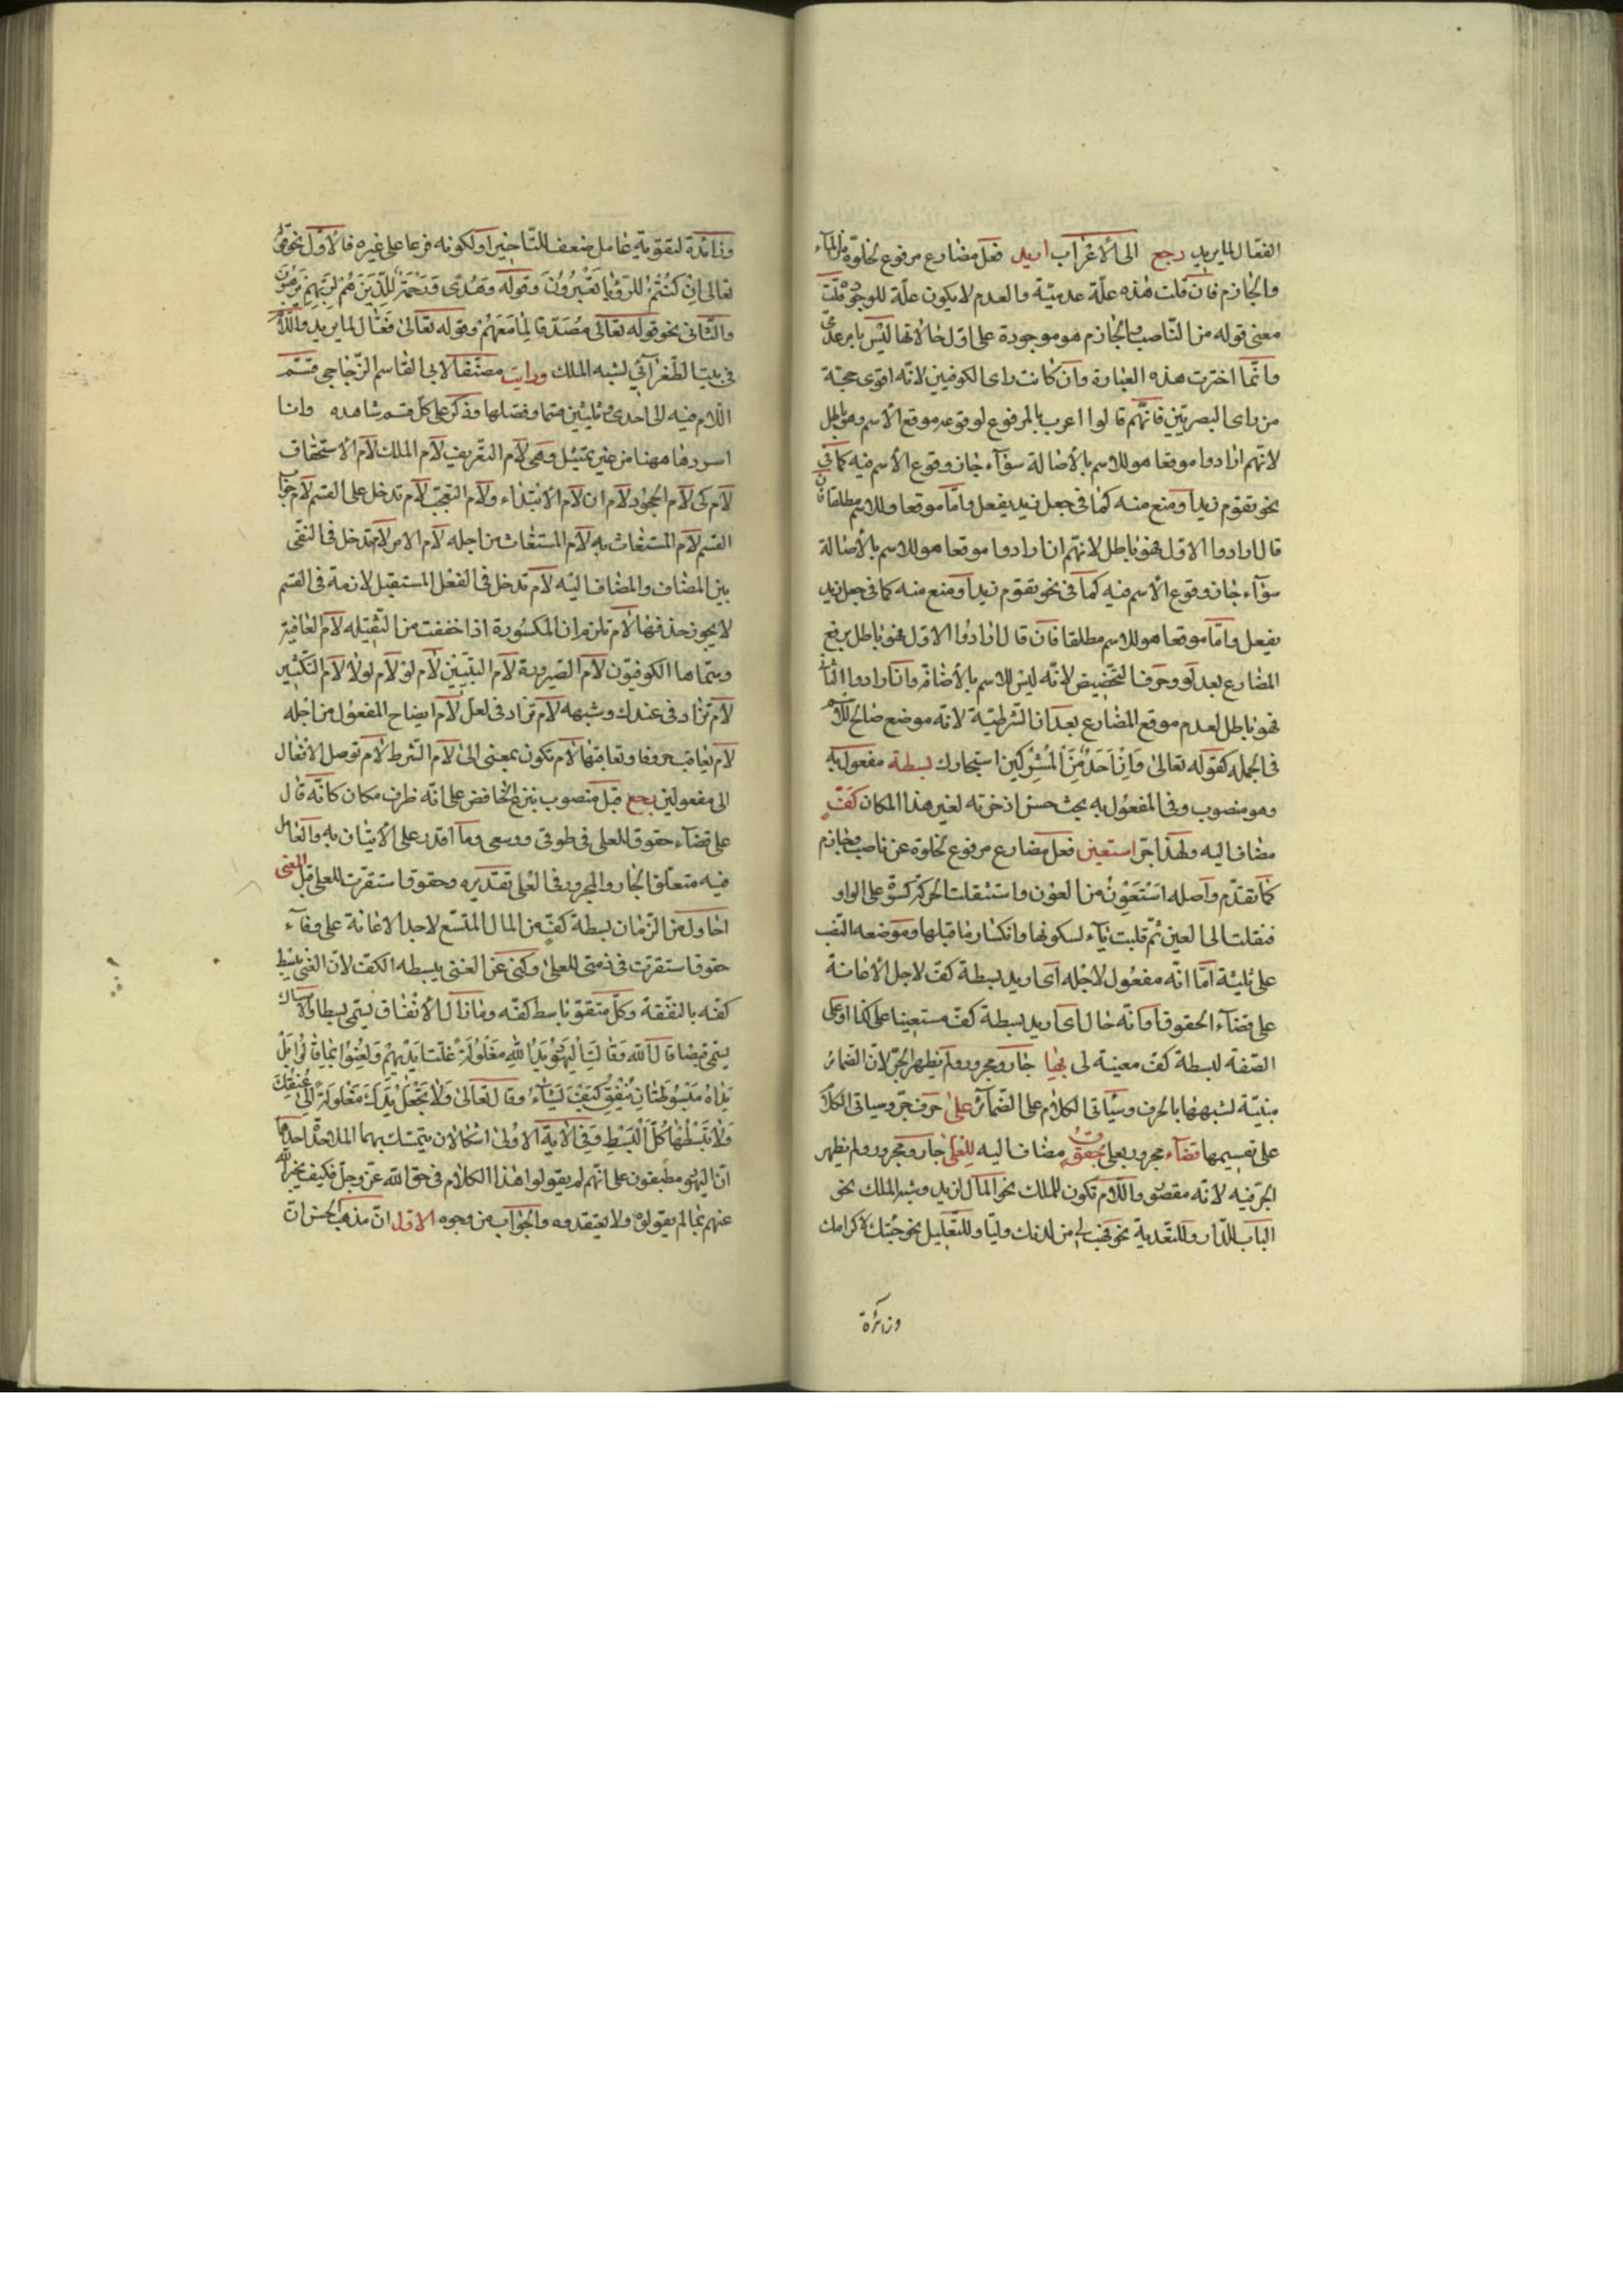 الفعّال لما يريد رجع الى الاعراب اريد فعل مضارع مرفوع لخلوّه من الناصب
والجازم فان قلت هذه علّة عدميّة والعدم لا يكون علّة للوجود قلت
معنى قوله من الناصب والجازم هو موجودة على اوّل حالاتها ليس بامر عدمى
وانّما اخترت هذه العبارة وان كانت راى الكوفيين لانّه اقوى حجّة
من راى البصريّين فانّهم قالوا اعرب بالمرفوع لوقوعه موقع الاسم وهو باطل
لانّهم ان ارادوا موقعا هو للاسم بالأصالة سوآء جاز وقوع الاسم فيه كما فى
نحو تقوم زيد او منع منه كما فى جعل زيد يفعل وامّا موقعا وللاسم مطلقا فان
قال ارادوا الاوّل فهو باطل لانّهم ان ارادوا موقعا هو للاسم بالأصالة
سوآء جاز وقوع الاسم فيه كما فى نحو تقوم زيد او منع منه كما فى جعل زيد
يفعل وامّا موقعا هو للاسم مطلقا فان قال ارادوا الاوّل فهو باطل برفع
المضارع بعد لو وحرف التحضيض لانّه ليس للاسم بالأضافة وان ارادوا الثانى
فهو باطل لعدم موقع المضارع بعد ان الشرطيّة لانّه موضع صالح للاسم
فى الجمله كقوله تعالى وَاِنْ اَحَدٌ مِنَ الْمُشْرِكينَ استجارك بسطة مفعول به
وهو منصوب وفى المفعول به بحث حسن اذخرته لغير هذا المكان كفّ
مضاف اليه ولهذا جرّ استعين فعل مضارع مرفوع لخلوّه عن ناصب وجازم
كما تقدّم واصله اَسْتَعْوِنُ من العون واستثقلت الحركة كسرة على الواو
فنقلت الى العين ثمّ قلبت يآء لسكونها وانكسار ما قبلها وموضعه النصب
على ثلثة امّا انّه مفعول لاجله اى اريد بسطة كفّ لاجل الأعانة
على قضآء الحقوق او انّه حال اى اريد بسطة كفّ مستعينا على كذا او على
الصّفة لبسطة كفّ معينة لى بها جار ومجرور ولم يظهر الجرّ لانّ الضمائر
مبنيّة لشبهها بالحرف وسيأتى الكلام على الضمآئر على حرف جرّ وسياتى الكلام
على تقسيمها قضآء مجرور بعلى حقوق مضاف اليه للعلى جار ومجرور ولم يظهر
الجرّ فيه لانّه مقصور واللام تكون للملك نحو المال لزيد وشبه الملك نحو
الباب للدّار وللتعدية نحو فهب لى من لدنك وليّا وللتعليل نحو جئتك لاكرامك
وزائدة
وزائدة لتقوية عامل ضعف للتّاخير او لكونه فرعا على غيره فالاوّل نحو قوله
تعالى اِنْ كُنْتُمْ لِلرُّؤْيا تَعْبُرُونَ وقوله وَهُدًى وَرَحْمَةٌ لِلَّذينَ هُمْ لِرَبِّهِمْ يَرْهَبُونَ
والثّانى نحو قوله تعالى مُصَدِّقًا لِمَا مَعَهُمْ وقوله تعالى فَعَّال لما يريد واللام
فى بيت الطغرآئى لشبه الملك ورايت مصنّفا لابى القاسم الزّجاجى قسّم
اللام فيه الى احدى وثلثين قسما وفصّلها وذكر على كلّ قسم شاهده وانا
اسردها ههنا من غير تمثيل وهى لام التعريف لام الملك لام الأستحقاق
لام كى لام الجحود لام ان لام الأبتداء ولام التعجّب لام تدخل على القسم لام جواب
القسم لام المستغاث به لام المستغاث من اجله لام الامر لام تدخل فى النفى
بين المضاف والمضاف اليه لام تدخل فى الفعل المستقبل لازمة فى القسم
لا يجوز حذفها لام تلزم ان المكسورة اذا خففت من الثقيله لام العاقبة
وسمّاها الكوفيّون لام الصيرورة لام التبيين لام لو لام لولا لام التكثير
لام تزاد فى عندك وشبهه لام تزاد فى لعلّ لام ايضاح المفعول من اجله
لام تعاقب حروفا وتعاقبها لام تكون بمعنى الى لام الشرط لام توصل الأفعال
الى مفعولين رجع قبل منصوب بنزع الخافض على انّه ظرف مكان كانّه قال
على قضآء حقوق للعلى فى طوقى ووسعى وما اقدر على الأتيان به والعامل
فيه متعلّق الجار والمجرور فى للعلى تقديره وحقوق استقرّت للعلى قبل المعنى
احاول من الزّمان بسطة كفّ من المال المتّسع لاجد الاعانة على وفآء
حقوق استقرّت فى ذمتى للعلى وكنى عن الغنى ببسطه الكفّ لانّ الغنى يبسط
كفّه بالنفقة وكلّ متفوّق باسط كفّه وما زال الأنفاق يسمّى بسطا والامساك
يسمّى قبضا قال اللّه وَقَالَتِ اليَهُودُ يَدُ اللّهِ مَغْلُولَةٌ غُلَّتْ اَيْديهِمْ وَلُعِنُوا بِمَا قَالُوا بَلْ
يَدَاهُ مَبْسُوطَتَانِ يُنْفِقُ كَيْفَ يَشَآءُ وقال تعالى وَلَا تَجْعَلْ يَدَكَ مَغْلُولَةً اِلَى عُنُقِكَ
وَلَا تَبْسُطْهَا كُلَّ الْبَسْطِ وفى الأية الاولى اشكالان يتمسّك بهما الملاحدة احدهما
انّ اليهود مطبقون على انّهم لم يقولوا هذا الكلام فى حق اللّه عزّ وجلّ فكيف يخبر اللّه
عنهم بما لم يقولوه ولا يعتقدوه والجواب من وجوه الاوّل انّ مذهب الحسن انّ